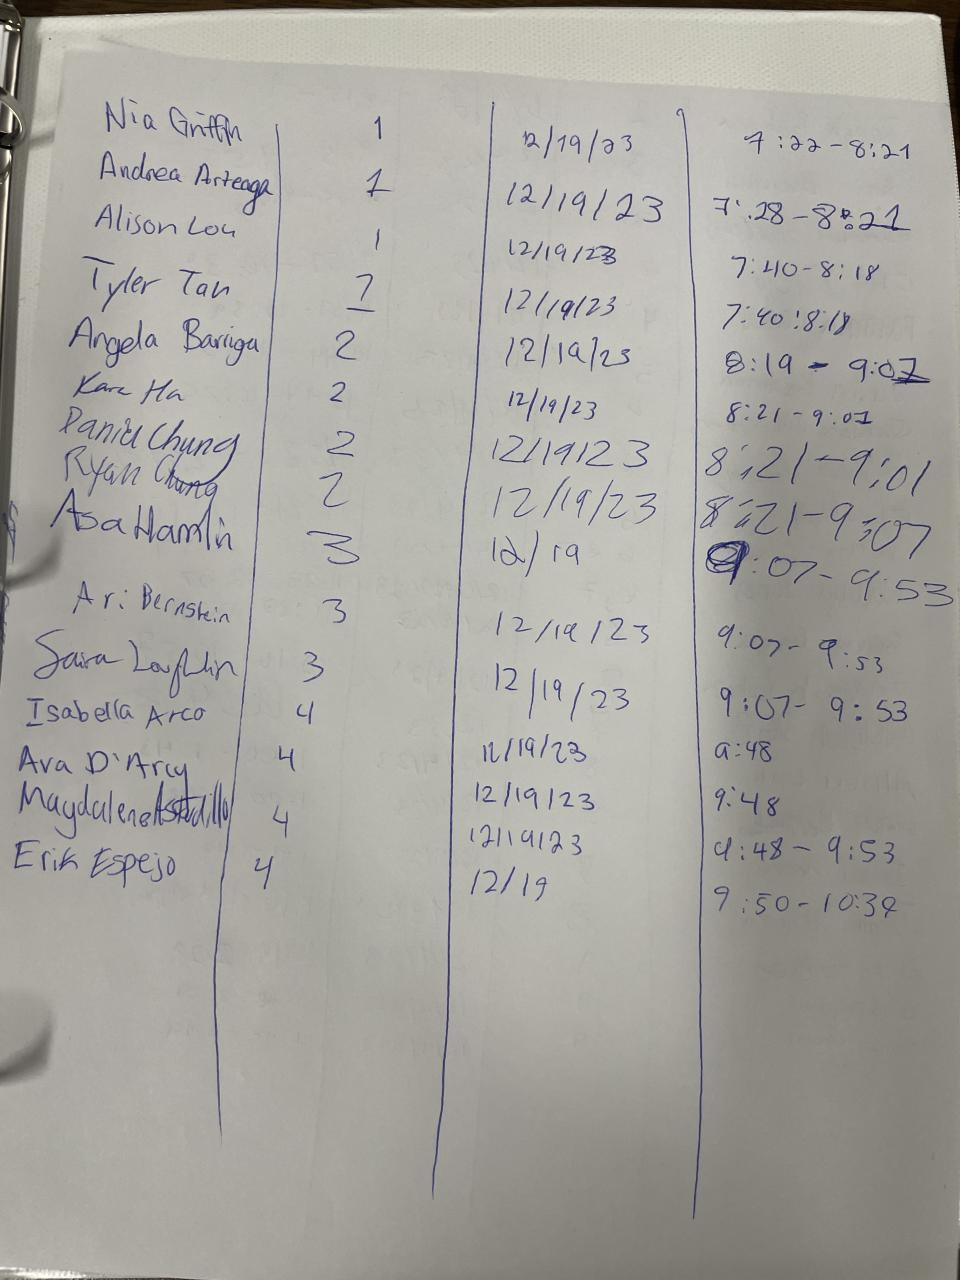 Nia Griffin 1 12/19/23 7:22-8:21
Andrea Arteaga 1 12/19/23 7:28-8:21
Alison Lou 1 12/19/23 7:40-8:18
Tyler Tan 1 12/19/23 7:40:8:18
Angela Barriga 2 12/19/23 8:19 - 9:07
Kara Ha 2 12/19/23 8:21-9:07
Daniel Chung 2 12/19/23 8:21-9:01
Ryan Chung 2 12/19/23 8:21-9:07
Asa Hamlin 3 12/19 9:07-9:53
Ari Bernstein 3 12/19/23 9:07-9:53
Saira 3 12/19/23 9:07-9:53
Isabella Arco 4 12/19/23 9:48
Ava D'Arcy 4 12/19/23 9:48
Magdalena Astudillo 4 12/19/23 9:48-9:53
Erik Espejo 4 12/19 9:50-10:34